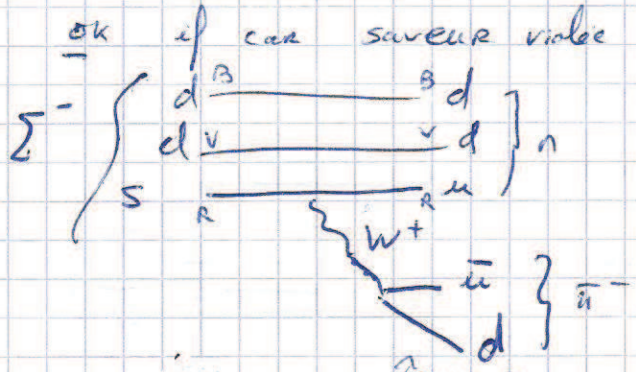 ok if car saveur violée
d B B d
Σ⁻ d V V d } n
S R R u
W⁺
ū } π⁻
d